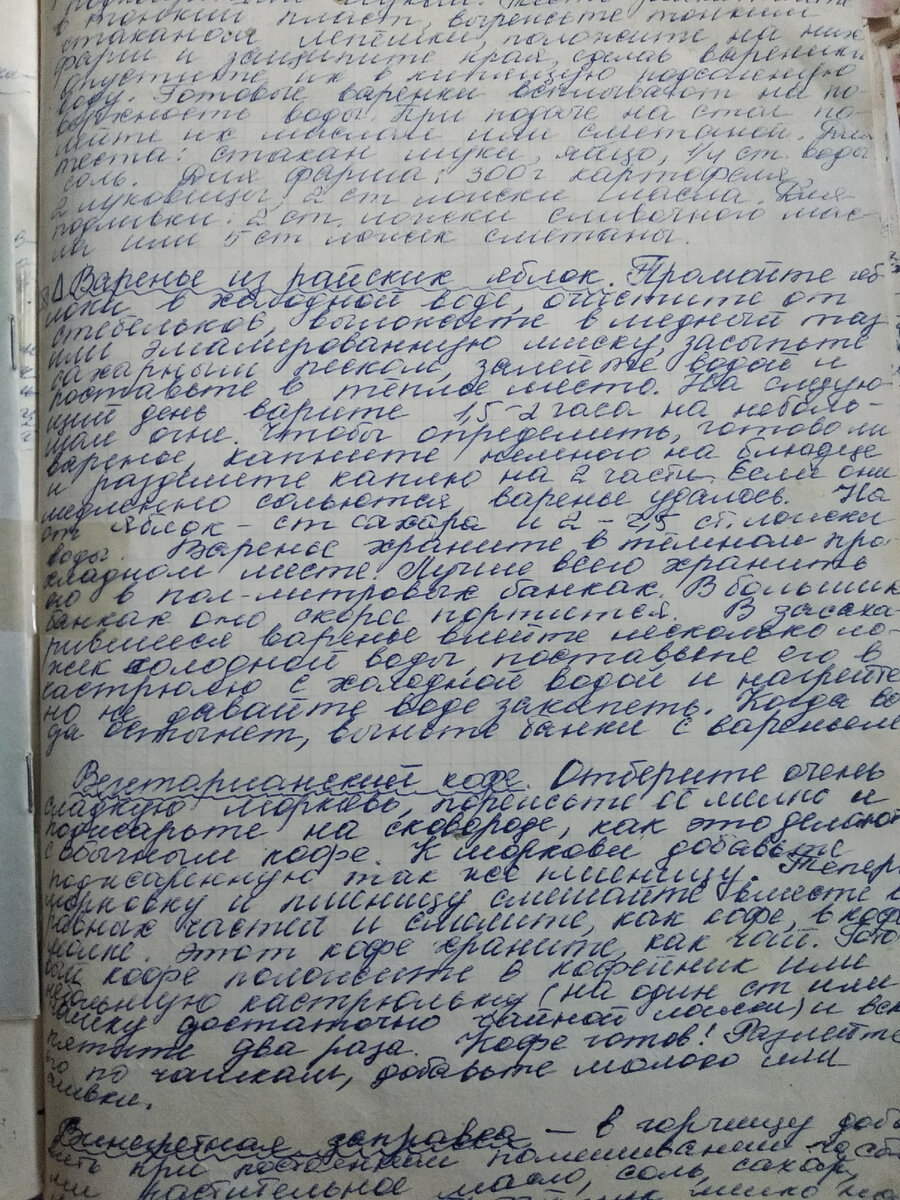 в тонкий пласт, вырежьте тонким
стаканом лепёшки, положите на них
фарш и защипите края, сделав вареники
опустите их в кипящую подсоленную
воду. Готовые варенки всплывают на по-
верхность воды. При подаче на стол по-
лейте их маслом или сметаной. Для
теста: стакан муки, яйцо, 1/4 ст воды
соль. Для фарша: 300г картофеля
2 луковицы, 2 ст ложки масла. Для
подливки: 2 ст. ложки сливочного мас-
ла или 5 ст ложек сметаны.
Варенье из райских яблок. Промойте яб-
локи в холодной воде, очистите от
стебельков, выложите в медный таз
или эмалированную миску, засыпьте
сахарным песком, залейте водой и
поставьте в тёплое место. На следую-
щий день варите 1,5-2 часа на неболь-
шом огне. Чтобы определить, готово ли
варенье, капните немного на блюдце
и разделите каплю на 2 части. Если они
медленно сольются варенье удалось. На
ст яблок - ст сахара и 2 - 2,5 ст. ложки
воды. Варенье храните в тёмном про-
хладном месте. Лучше всего хранить
его в пол-литровых банках. В больших
банках оно скорее портится. В засаха-
рившееся варенье влейте несколько ло-
жек холодной воды, поставьте его в
кастрюлю с холодной водой и нагрейте
но не давайте воде закипеть. Когда во-
да остынет, выньте банки с вареньем
Вегетарианский кофе. Отберите очень
сладкую морковь, порежьте её мелко и
поджарьте на сковороде, как это делают
с обычным кофе. К моркови добавьте
поджаренную так же пшеницу. Теперь
морковку и пшеницу смешайте вместе в
равных частей и смелите, как кофе, в кофе
молке. Этот кофе храните, как чай. Гото-
вый кофе положите в кофейник или
небольшую кастрюльку (на один ст или
чашку достаточно чайной ложки) и вски
пятите два раза. Кофе готов! Разлейте
его по чашкам, добавьте молоко или
сливки.
Винегретная заправка - в горчицу доба
вить при постоянном помешивании
растительное масло, соль, сахар,